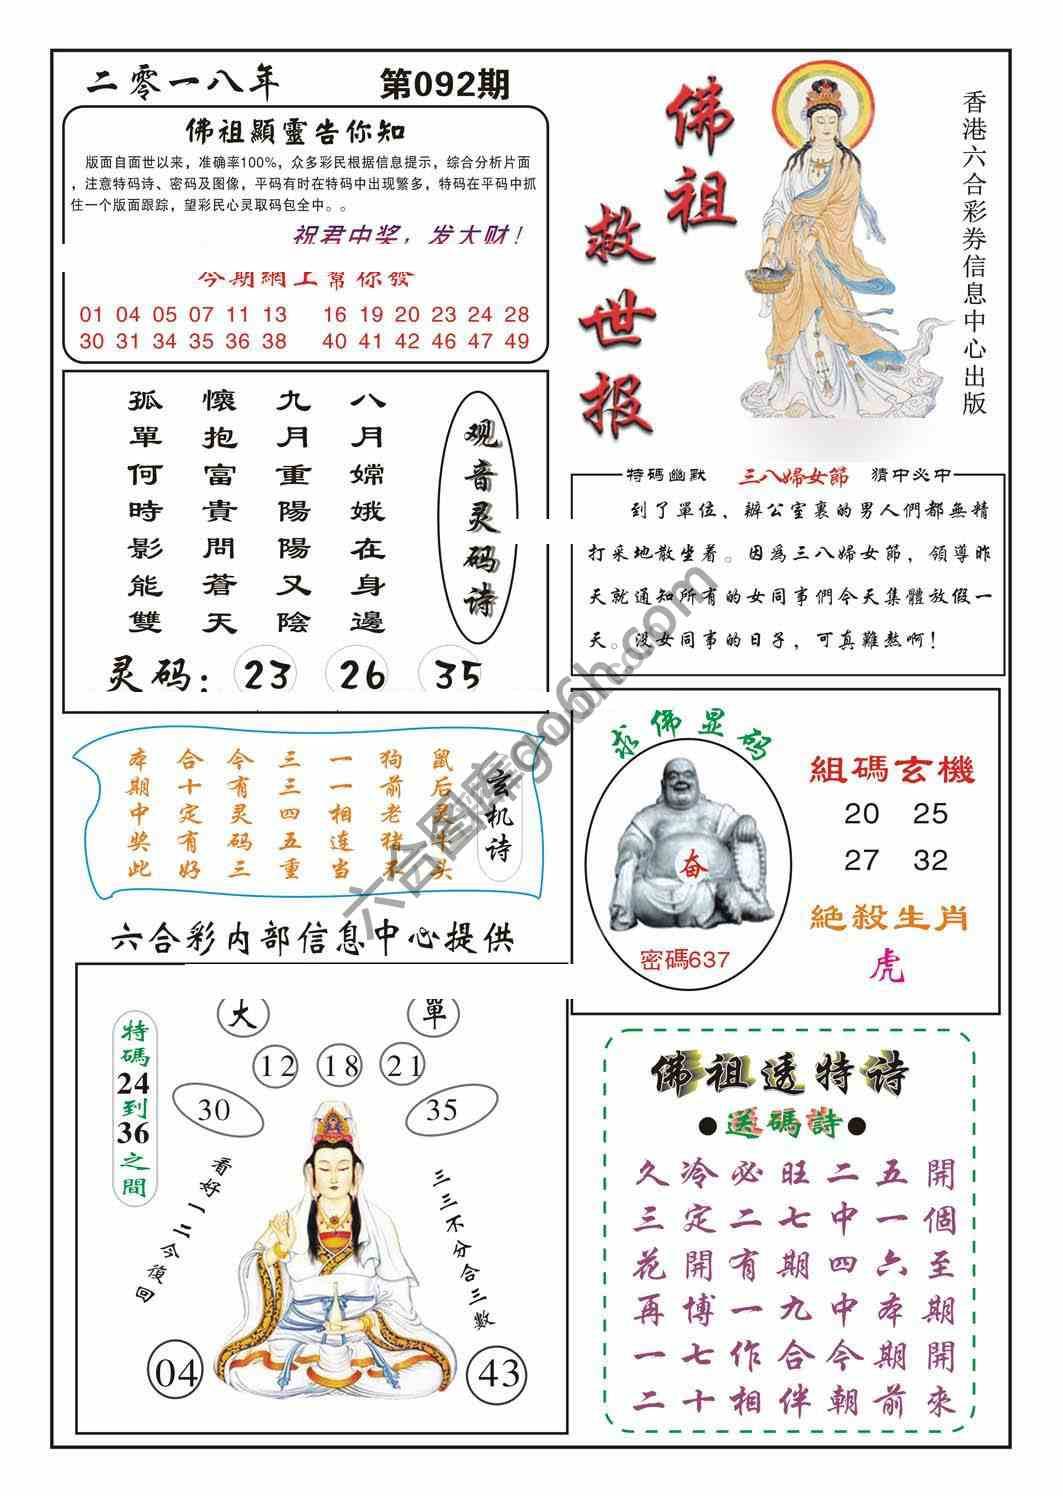 二零一八年
第092期
佛祖顯靈告你知
版面自面世以来，准确率100%，众多彩民根据信息提示，综合分析片面
，注意特码诗、密码及图像，平码有时在特码中出现繁多，特码在平码中抓
住一个版面跟踪，望彩民心灵取码包全中。。
祝君中奖，发大财！
今期網上幫你發
01 04 05 07 11 13 16 19 20 23 24 28
30 31 34 35 36 38 40 41 42 46 47 49
佛祖
救世报
香港六合彩券信息中心出版
观音灵码诗
八月嫦娥在身邊
九月重陽陽又陰
懷抱富貴問蒼天
孤單何時影能雙
灵码：23 26 35
特碼幽默 三八婦女節 猜中必中
到了單位、辦公室裏的男人們都無精
打采地散坐着。因爲三八婦女節，領導昨
天就通知所有的女同事們今天集體放假一
天。没女同事的日子，可真難熬啊！
玄机诗
鼠后灵牛头
狗前老猪不
一一相连当
三三四五重
今有灵码三
合十定有好
本期中奖此
求佛显码
奋
密碼637
組碼玄機
20 25
27 32
絕殺生肖
虎
六合彩内部信息中心提供
特碼24到36之間
大 單
12 18 21
30 35
看好一二今復回
三三不分合三數
04 43
佛祖透特诗
●送碼詩●
久冷必旺二五開
三定二七中一個
花開有期四六至
再博一九中本期
一七作合今期開
二十相伴朝前來
六合图库go66h.com